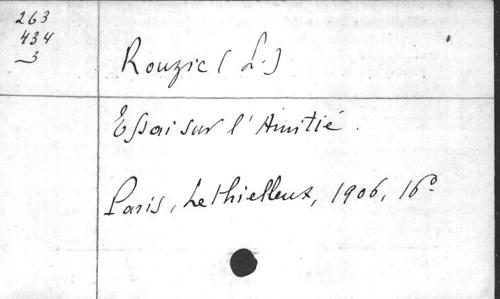 263
434
3
Rouzic (L.)
Essai sur l'Amitié.
Paris, Lethielleux, 1906, 16°